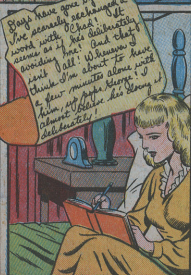 Days have gone by and
I've scarcely exchanged a
word with Chad! It
seems as if he's deliberately
avoiding me! And that
isn't all! Whenever I
think I'm about to have
a few minutes alone with
him, up pops George! I
almost believe he's doing it
deliberately!